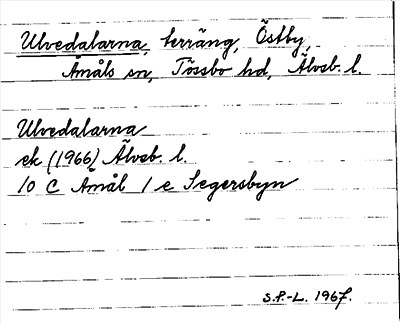 Ulvedalarna, terräng, Östby,
Åmåls sn, Tössbo hd, Älvsb. l.
Ulvedalarna
ek (1966) Älvsb. l.
10 C Åmål 1 e Segersbyn
S.P.-L. 1967.